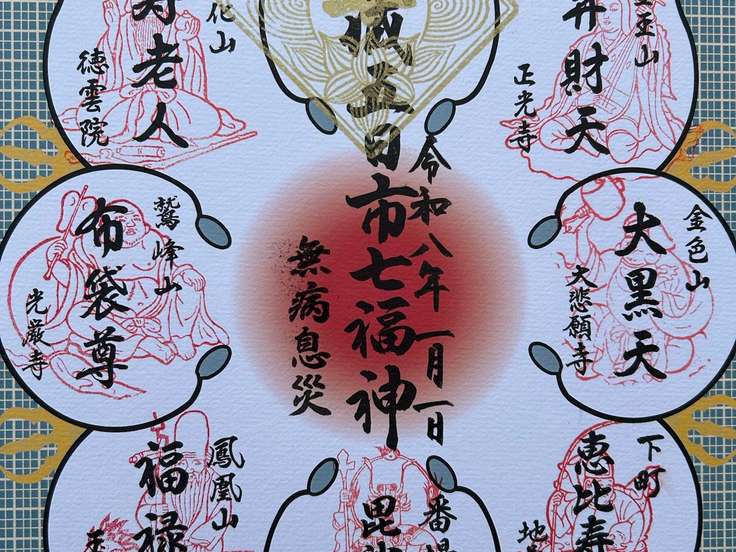 弁財天
正光寺
寿老人
徳雲院
蔵五日市七福神
令和八年一月一日
無病息災
金色山
大黒天
大悲願寺
鷲峰山
布袋尊
光厳寺
下町
恵比寿
地
番場
毘沙
鳳凰山
福禄